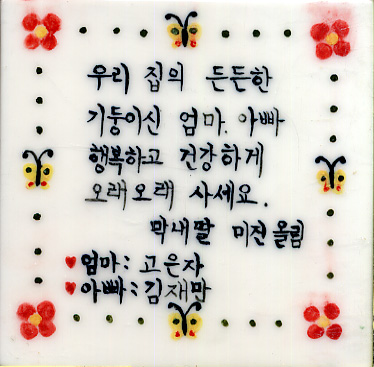 우리 집의 든든한
기둥이신 엄마. 아빠
행복하고 건강하게
오래오래 사세요.
막내딸 미진 올림
♥엄마: 고은자
♥아빠: 김재만